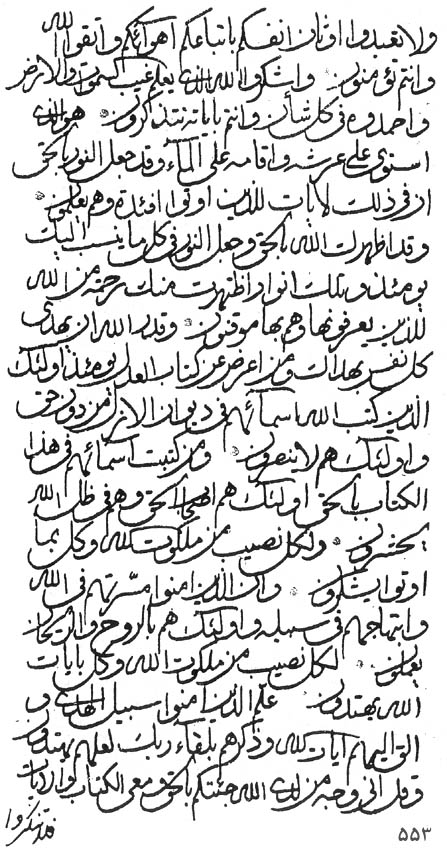 ولا تعبدوا اوثان انفسكم باتباعكم اهوآئكم واتقوا الله
وانتم تؤمنون واشكروا الله الذى يعلم غيب السموات والارض
واحمدوه فى كل شأن وانتم باياته تتذكرون هو الذى
استوى على عرشه واقامه على المآء وقد جعل النور بالحق
ان فى ذلك لايات للذين اوتوا افئدة وهم يعلمون
وقد اظهرت الله بالحق وجعل النور فى كل ما ينسب اليك
يومئذ وتلك انوار اظهرت منك رحمة من الله
للذين يعرفونها وهم بها موقنون وقدر الله ان يهدى
كل نفس بهداك ومن اعرض عن كتاب العدل يومئذ اولئك
الذين كتب الله اسمآئهم فى ديوان الاخرة من دون حق
واولئك هم لا ينصرون ومن كتبت اسمائهم فى هذا
الكتاب بالحق اولئك هم اصحاب الحق وهم فى ظل الله
يحشرون ولكل نصيب من ملكوت الله وكل بما
اوتوا يشكرون وان الذين امنوا مسرتهم فى الله
وابتهاجهم فى سبيله واولئك هم بالروح والريحان
يعملون لكل نصيب من ملكوت الله وكل بايات
الله يهتدون علم الذين امنوا سبيل الهدى و
الق اليهم آيات الله وذكرهم بلقآء ربك لعلهم يهتدون
وقل انى وجه من لدى الله جئتكم بالحق ومعى الكتاب
فلا تنكروا
۵۵۳